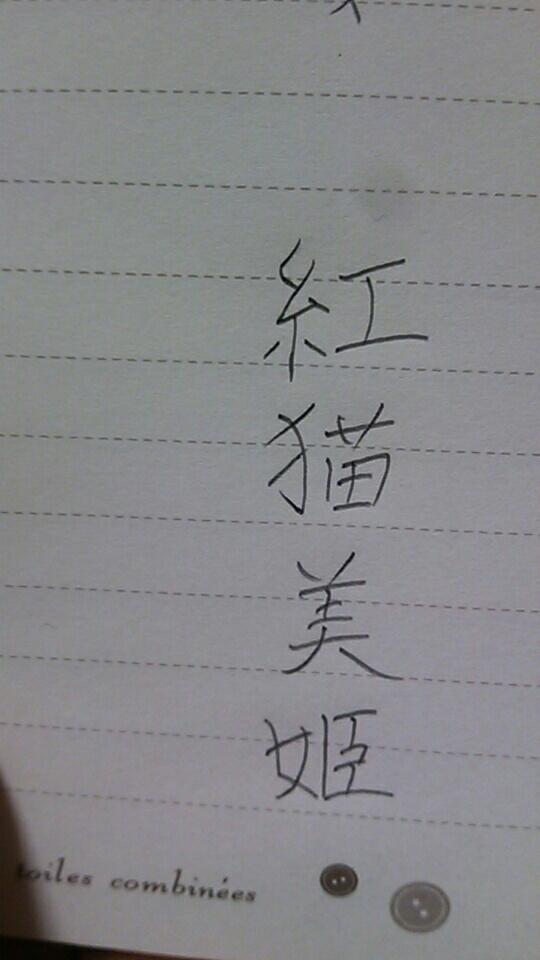 紅猫美姫
toiles combinées